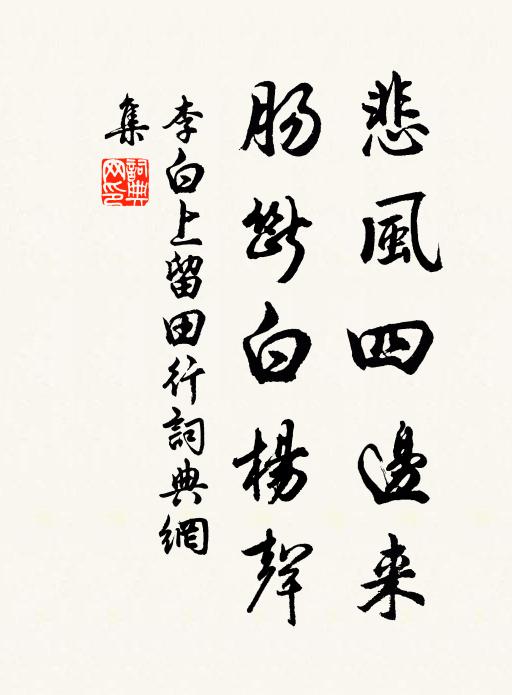 悲風四邊来
腸斷白楊聲
李白上留田行詞典網
集
詞典网印